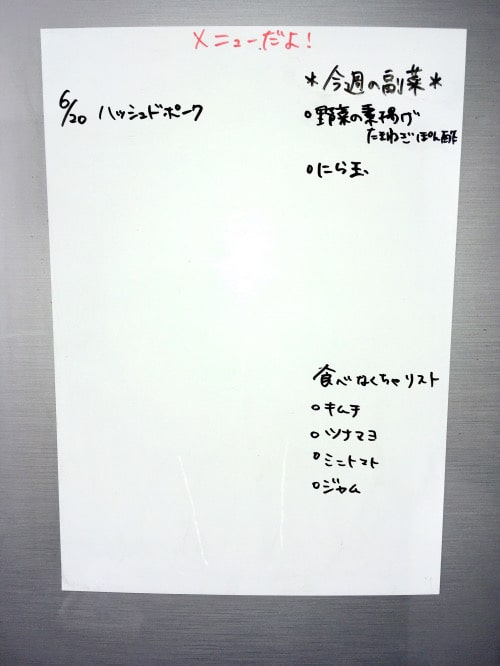 メニューだよ!
6/20 ハッシュドポーク
*今週の副菜*
○野菜の素揚げ
たまねぎぽん酢
○にら玉
食べなくちゃリスト
○キムチ
○ツナマヨ
○ミニトマト
○ジャム